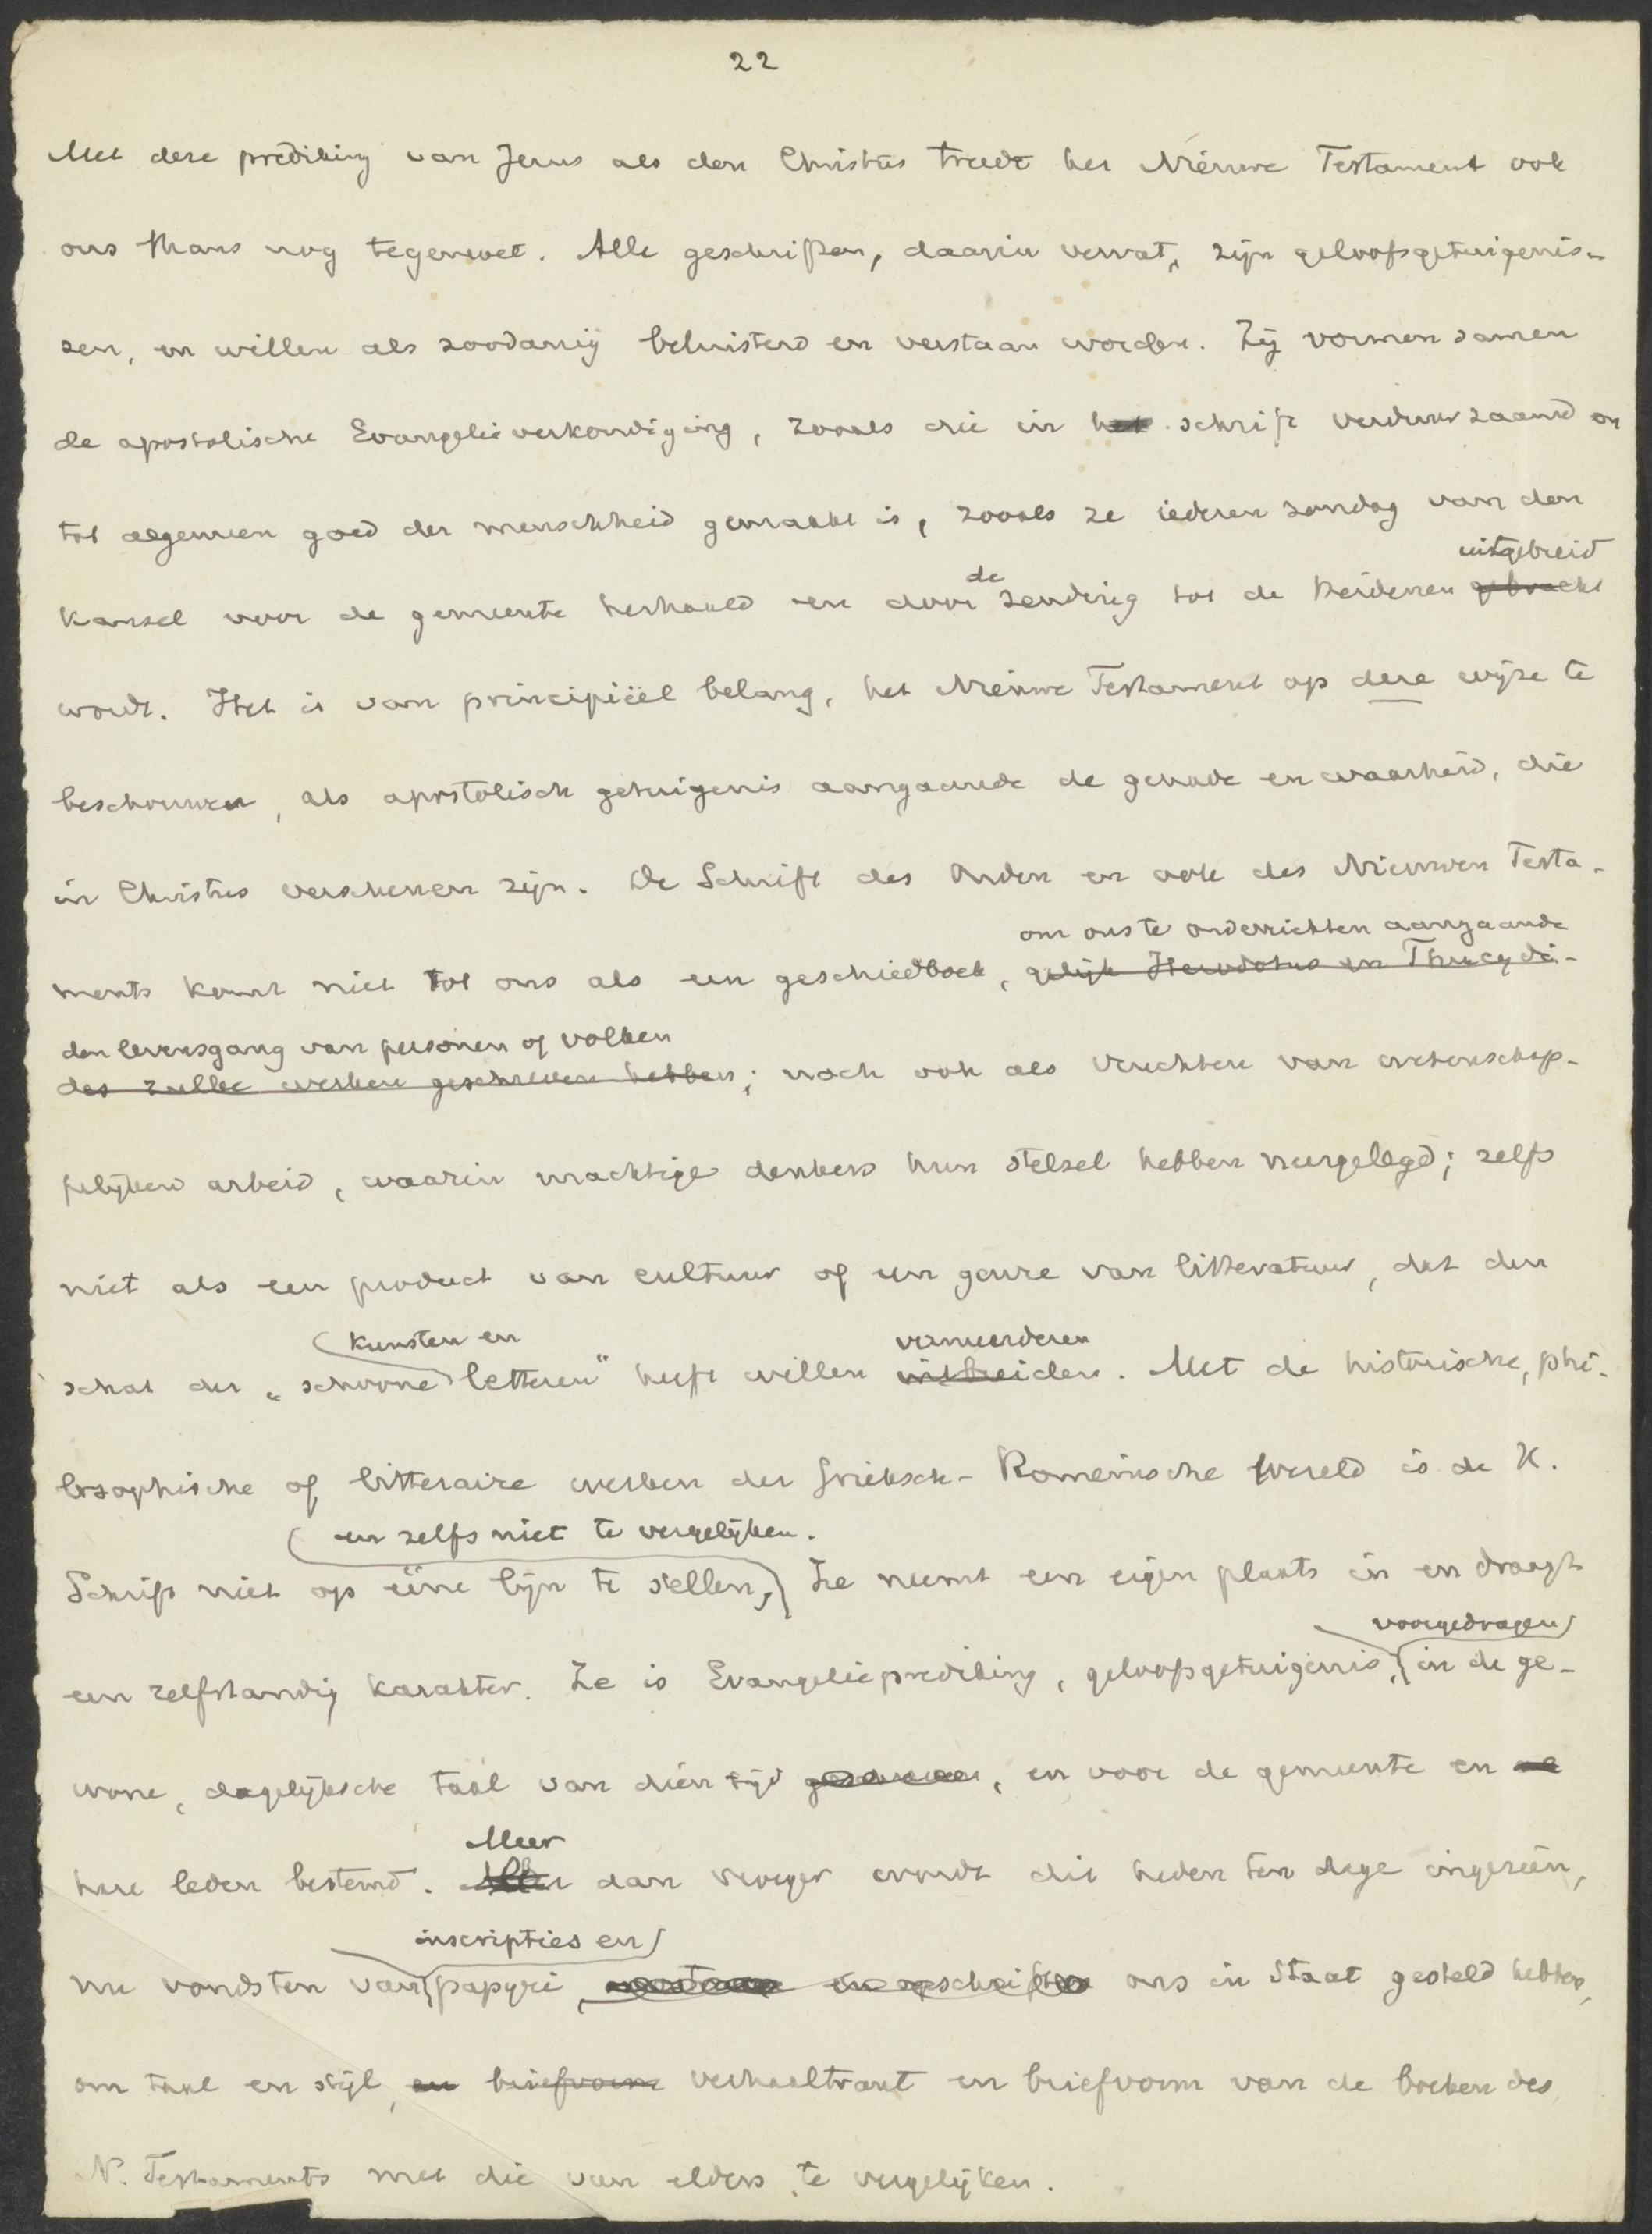 22
Met deze prediking van Jezus als den Christus treedt het Nieuwe Testament ook
ons thans nog tegemoet. Alle geschriften, daarin vervat, zijn geloofsgetuigenis-
sen, en willen als zoodanig beluisterd en verstaan worden. Zij vormen samen
de apostolische Evangelieverkondiging, zooals die in het schrift verduurzaamd en
tot algemeen goed der menschheid gemaakt is, zooals ze iederen zondag van den
uitgebreid
kansel voor de gemeente herhaald en door de zending tot de Heidenen gebracht
wordt. Het is van principiëel belang, het Nieuwe Testament op deze wijze te
beschouwen, als apostolisch getuigenis aangaande de genade en waarheid, die
in Christus verschenen zijn. De Schrift des Ouden en ook des Nieuwen Testa-
om ons te onderrichten aangaande
ments komt niet tot ons als een geschiedboek, gelijk Herodotus en Thucydi-
den levensgang van personen of volken
des zulke werken geschreven hebben; noch ook als vruchten van wetenschap-
pelijken arbeid, waarin machtige denkers hun stelsel hebben neergelegd; zelfs
niet als een product van cultuur of een genre van litteratuur, dat den
kunsten en vermeerderen
schat der „schoone letteren" heeft willen uitbreiden. Met de historische, phi-
losophische of litteraire werken der Grieksch-Romeinsche wereld is de H.
en zelfs niet te vergelijken.
Schrift niet op ééne lijn te stellen, Ze neemt een eigen plaats in en draagt
voorgedragen
een zelfstandig karakter. Ze is Evangelieprediking, geloofsgetuigenis, in de ge-
wone, dagelijksche taal van dien tijd geschreven, en voor de gemeente en
Meer
hare leden bestemd. dan vroeger wordt dit heden ten dage ingezien,
inscripties en
nu vondsten van papyri, ons in staat gesteld hebben,
om taal en stijl, en briefvorm verhaaltrant en briefvorm van de boeken des
N. Testaments met die van elders te vergelijken.